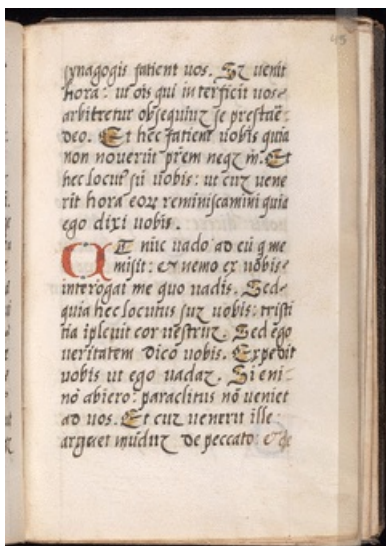 45
synagogis facient vos. Sz venit
hora: ut oīs qui interficit vos
arbitretur obsequiuz se prestaē
deo. Et hec facient vobis quia
non noverūt p̄rem neqz m̄. Et
hec locut sū vobis: ut cuz vene
rit hora eoꝝ reminiscamini quia
ego dixi vobis.
AT nūc vado ad eū q me
misit: & nemo ex vobis
interogat me quo vadis. Sed
quia hec locutus suz vobis: tristi
tia iplevit cor vestruz. Sed ego
veritatem dico vobis. Expedit
vobis ut ego vadaz. Si eni
nō abiero: paraclitus nō veniet
ad vos. Et cuz venerit ille
arguet mūduz de peccato: & de